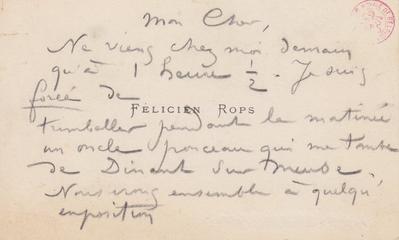 Mon Cher,
Ne viens chez moi demain
qu'à 1 heure 1/2 - Je suis
forcé de
FÉLICIEN ROPS
trimballer pendant la matinée
un oncle ponceau qui me tombe
de Dinant sur Meuse.
Nous irons ensemble à quelqu'
exposition